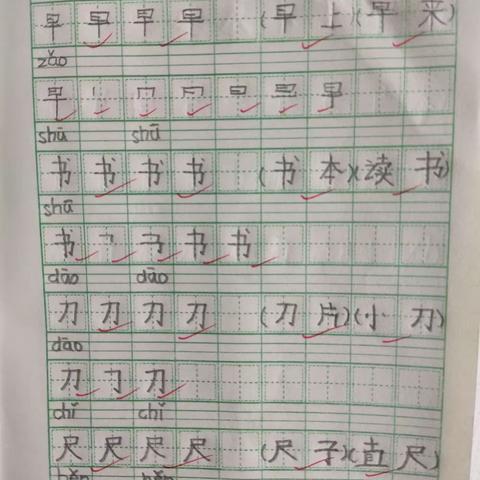 早 早 早 早 (早 上)(早 来)
zǎo
早 丨 冂 日 旦 早
shū shū
书 书 书 书 (书 本)(读 书)
shū
书 乛 书 书
dāo dāo
刀 刀 刀 刀 (刀 片)(小 刀)
dāo
刀 𠃌 刀
chǐ chǐ
尺 尺 尺 尺 (尺 子)(直 尺)